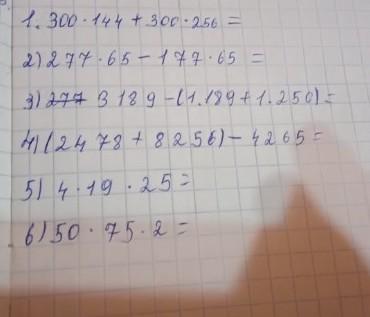 1. 300 · 144 + 300 · 256 =
2) 277 · 65 - 177 · 65 =
3) 277 3189 - (1.189 + 1.250) =
4) (2478 + 8256) - 4265 =
5) 4 · 19 · 25 =
6) 50 · 75 · 2 =